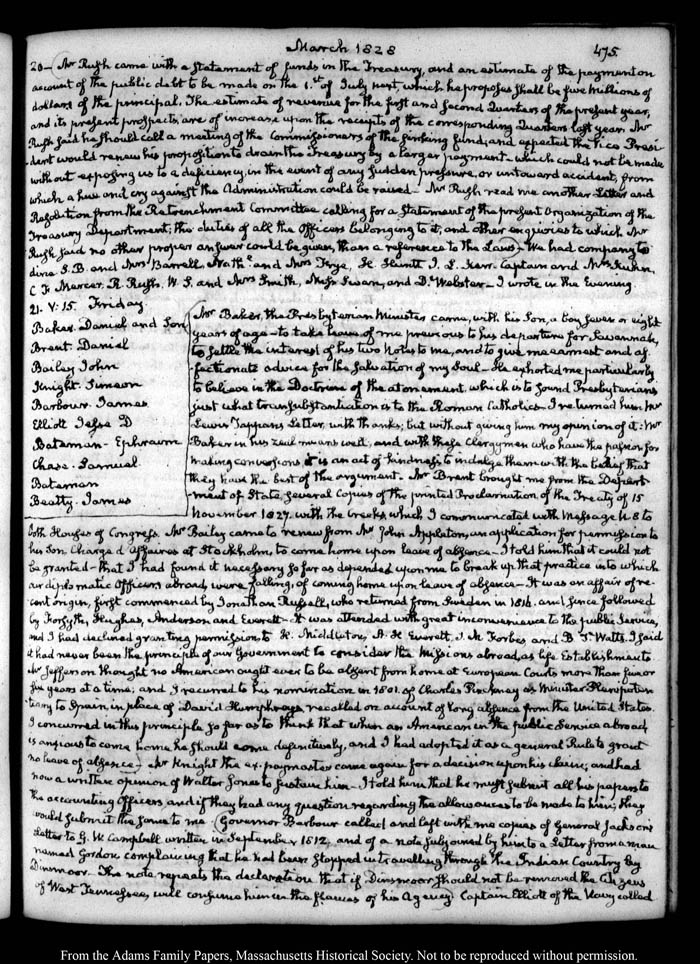 March 1828
475
20— Mr Rush came with a Statement of funds in the Treasury, and an estimate of the payment on
account of the public debt to be made on the 1.st of July next, which he proposes shall be five Millions of
dollars of the principal. The estimate of revenue for the first and second Quarters of the present year,
and its present prospects, are of increase upon the receipts of the corresponding Quarters last year. Mr
Rush said he should call a meeting of the Commissioners of the sinking fund; and expected the Vice Presi-
dent would renew his proposition to drain the Treasury by a larger payment— which could not be made
without exposing us to a deficiency, in the event of any sudden pressure, or untoward accident, from
which a hue and cry against the Administration could be raised— Mr Rush read me another Letter and
Resolution from the Retrenchment Committee calling for a Statement of the present Organization of the
Treasury Department; the duties of all the Officers belonging to it, and other enquiries to which Mr
Rush said no other proper answer could be given, than a reference to the Laws. We had company to
dine J. B. and Mrs Barrell, Nath.l and Mrs Frye, H. Huntt J. L. Kerr. Captain and Mrs Kuhn,
C. F. Mercer. R. Rush, W. S. and Mrs Smith, Miss Swan, and D. Webster— I wrote in the Evening
21. V: 15. Friday.
Baker. Daniel and Son
Brent Daniel
Bailey John
Knight. Simeon
Barbour. James
Elliott Jesse D
Bateman— Ephraim
Chase. Samuel
Bateman
Beatty. James
Mr Baker, the Presbyterian Minister came, with his Son, a boy seven or eight
years of age— to take leave of me previous to his departure for Savannah,
to settle the interest of his two Notes to me, and to give me earnest and af-
fectionate advice for the Salvation of my Soul— He exhorted me particularly
to believe in the Doctrine of the atonement, which is to sound Presbyterians
just what transubstantiation is to the Roman Catholics— I returned him Mr
Lewis Tappan's Letter, with thanks; but without giving him my opinion of it: Mr
Baker in his zeal means well, and with these Clergymen who have the passion for
making conversions it is an act of kindness to indulge them with the belief that
they have the best of the argument— Mr Brent brought me from the Depart-
ment of State, several Copies of the printed Proclamation of the Treaty of 15
November 1827. with the Creeks, which I communicated with Message N. 8 to
both Houses of Congress. Mr Bailey came to renew from Mr John Appleton, an application for permission to
his Son, Chargé d'Affaires at Stockholm, to come home upon leave of absence— I told him that it could not
be granted— that I had found it necessary so far as depended upon me to break up that practice into which
our diplomatic Officers abroad, were falling, of coming home upon leave of absence— It was an affair of re-
cent origin, first commenced by Jonathan Russell, who returned from Sweden in 1816. and since followed
by Forsyth, Hughes, Anderson and Everett— It was attended with great inconvenience to the public Service,
and I had declined granting permission to H. Middleton, A. H. Everett, J. M. Forbes and B. T. Watts. I said
it had never been the principle of our Government to consider the Missions abroad, as life Establishments
Mr Jefferson thought no American ought ever to be absent from home at European Courts more than four or
five years at a time; and I recurred to his nomination in 1801. of Charles Pinckney as Minister Plenipoten-
tiary to Spain, in place of David Humphreys, recalled on account of long absence from the United States.
I concurred in this principle so far as to think that when an American in the public Service abroad
is anxious to come home, he should come definitively, and I had adopted it as a general Rule to grant
no leave of absence— Mr Knight the ex-paymaster came again for a decision upon his claim; and had
now a written opinion of Walter Jones to sustain him— I told him that he must submit all his papers to
the accounting Officers, and if they had any question regarding the allowances to be made to him; they
would submit the same to me. Governor Barbour called and left with me copies of General Jackson's
Letter to G. W. Campbell written in September 1812, and of a note subjoined by him to a Letter from a man
named Gordon, complaining that he had been stopped in travelling through the Indian Country by
Dinsmoor. The note repeats the declaration that if Dinsmoor should not be removed the Citizens
of West Tennessee, will consume him in the flames of his Agency. Captain Elliott of the Navy called
From the Adams Family Papers, Massachusetts Historical Society. Not to be reproduced without permission.